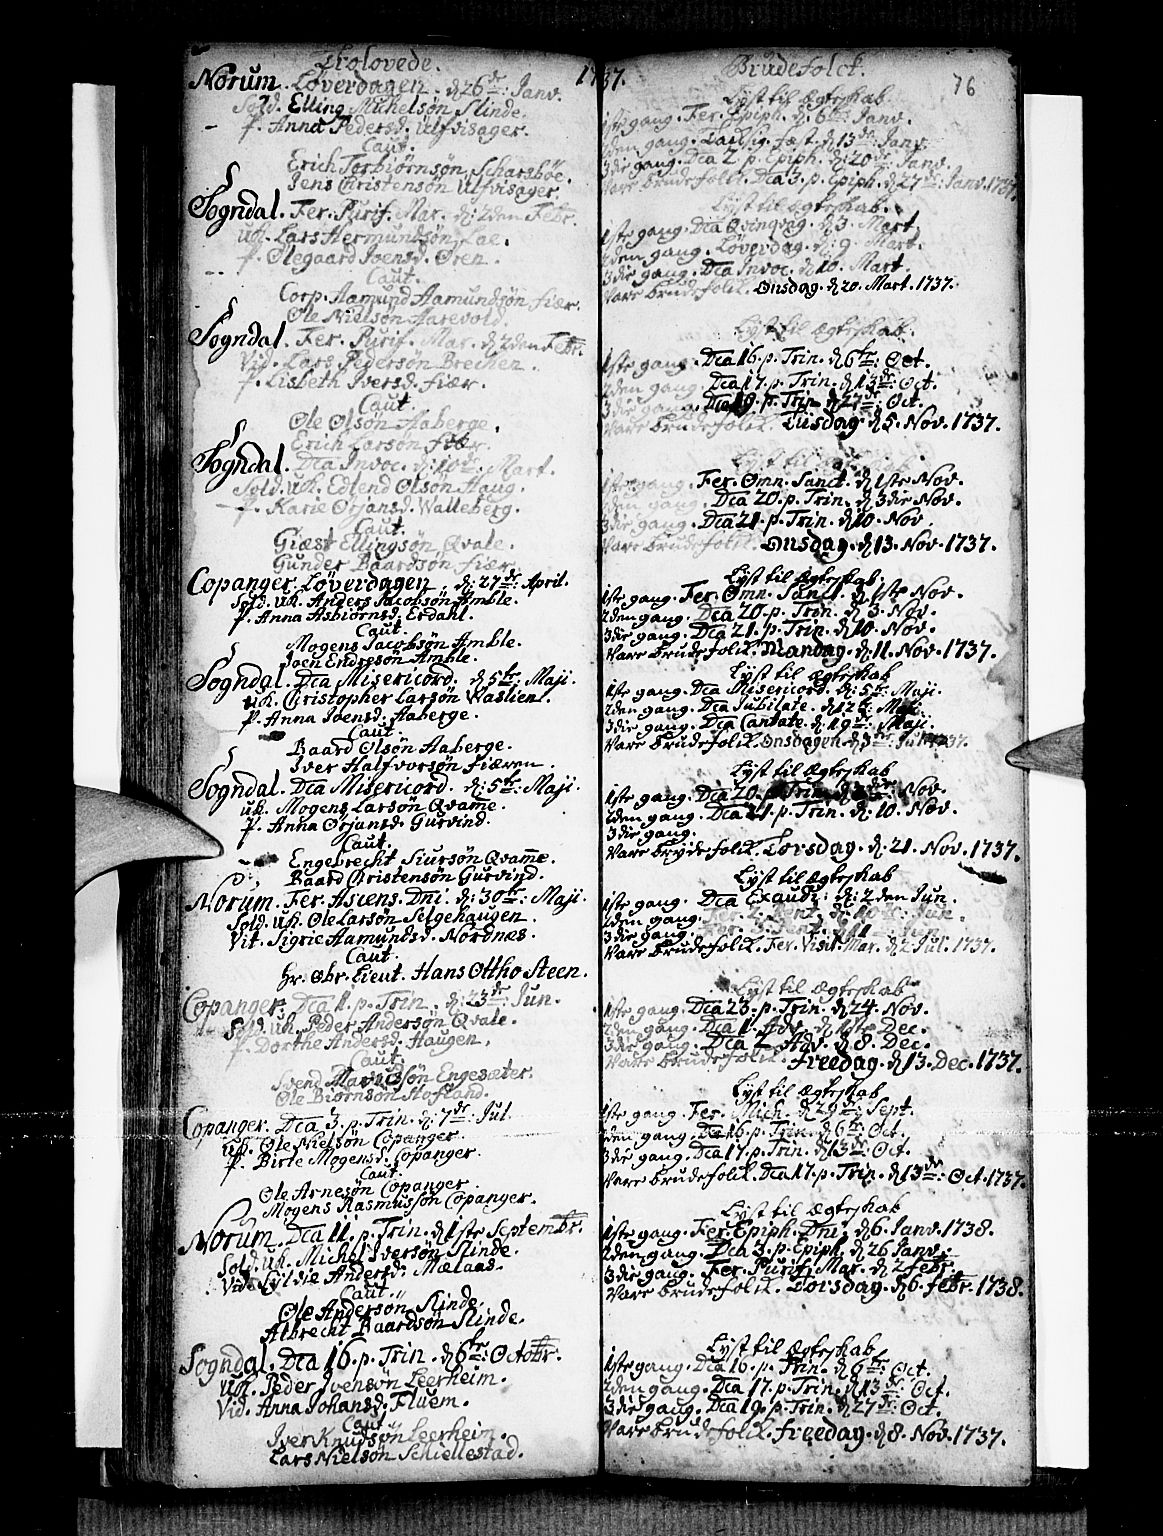 Trolovede. 1737.
Norum. Löverdagen. d. 26de Janv.
Sold. Elling Michelsön Slinde.
P. Anna Pedersd. Ulfvisager.
Caut.
Erich Torbiörnsön Scharsböe.
Jens Christensön Ulfvisager.
Sogndal. Fer. Purif. Mar. d. 2den Febr.
uk. Lars Hermundsön Loe.
P. Ølegaard Joensd. Øren.
Caut.
Corp. Aamund Aamundsön Fiær.
Ole Nielsön Aarevold.
Sogndal. Fer. Purif. Mar. d. 2den Febr.
Vid. Lars Pedersön Brechen.
P. Lisbeth Iversd. Fiær.
Caut.
Ole Olsön Aaberge.
Erich Larsön Fiær.
Sogndal. Dca Invoc. d. 10de Mart.
Sold. uk. Edlend Olsön Haug.
P. Karie Ørjansd. Walleberg.
Caut.
Giæst Ellingsön Qvale.
Gunder Baardsön Fiær.
Copanger. Löverdagen. d. 27de April.
Sold. uk. Anders Jacobsön Amble.
P. Anna Asbiörnsd. Erdahl.
Caut.
Mogens Jacobsön Amble.
Joen Endresön Amble.
Sogndal. Dca Misericord. d. 5te Maji.
uk. Christopher Larsön Waslien.
P. Anna Joensd. Aaberge.
Caut.
Baard Olsön Aaberge.
Iver Halfvorsön Fiæren.
Sogndal. Dca Misericord. d. 5te Maji.
uk. Mogens Larsön Qvame.
P. Anna Ørjansd. Gurvind.
Caut.
Engebrecht Siursön Qvam̅e.
Baard Christensön Gurvind.
Norum. Fer. Ascens. Dni. d. 30te Maji.
Sold. uk. Ole Larsön Selgehaugen.
Vit. Sigrie Aamundsd. Nordnæs.
Caut.
Hr. Obr. Lieut. Hans Ottho Steen.
Copanger. Dca 1. p. Trin. d. 23de Jun.
Sold. uk. Peder Andersön Qvale.
P. Dorthe Andersd. Haugen.
Caut.
Svend Engesæter.
Ole Biörnsön Hofland.
Copanger. Dca 3. p. Trin. d. 7de Jul.
uk. Ole Nielsön Copanger.
P. Birte Mogensd. Copanger.
Caut.
Ole Arnesön Copanger.
Mogens Rasmussön Copanger.
Norum. Dca 11. p. Trin. d. 1ste Septembr.
Sold. uk. Michel Iversön Slinde.
Vid. Sildie Andersd. Mælaas.
Caut.
Ole Anderson Slinde.
Albrecht Baardsön Slinde.
Sogndal. Dca 16. p. Trin. d. 6te Octobr.
uk. Peder Ivensön Leerheim.
Vid. Anna Johansd. Fluem.
Caut.
Iver Knudsön Leerheim.
Lars Nielsön Schiellestad.
Brudefolck. 76
Lyst til Ægteskab
1ste gang. Fer. Epiph. d. 6te Janv.
2den gang. Fest. d. 13de Janv.
3die gang. Dca 2. p. Epiph. d. 20de Janv.
Vare brudefolck. Dca 3. p. Epiph. d. 27de Janv. 1737.
Lyst til Ægteskab.
1ste gang. Dca Qvinqvag. d. 3. Mart.
2den gang. Löverdag. d. 9. Mart.
3die gang. Dca Invoc. d. 10. Mart.
Vare brudefolck. Onsdag. d. 20. Mart. 1737.
Lyst til Ægteskab.
1ste gang. Dca 16. p. Trin. d. 6te Oct.
2den gang. Dca 17. p. Trin. d. 13de Oct.
3die gang. Dca 19. p. Trin. d. 27de Oct.
Vare brudefolck. Tüsdag. d. 5. Nov. 1737.
Lyst til Ægteskab
1ste gang. Fer. Omn. Sanct. d. 1ste Nov.
2den gang. Dca 20. p. Trin. d. 3die Nov.
3die gang. Dca 21. p. Trin. d. 10. Nov.
Vare brudefolck. Onsdag. d. 13. Nov. 1737.
Lyst til Ægteskab.
1ste gang. Fer. Omn. Sanct. d. 1ste Nov.
2den gang. Dca 20. p. Trin. d. 3. Nov.
3die gang. Dca 21. p. Trin. d. 10. Nov.
Vare brudefolck. Mandag. d. 11. Nov. 1737.
Lyst til Ægteskab
1ste gang. Dca Misericord. d. 5te Maji.
2den gang. Dca Jubilate. d. 12te Maji.
3die gang. Dca Cantate. d. 19de Maji.
Vare brudefolck. Onsdagen. d. 3de Jul. 1737.
Lyst til Ægteskab
1ste gang. Dca 20. p. Trin. d. 3die Nov.
2den gang. Dca 21. p. Trin. d. 10. Nov.
3die gang.
Vare brudefolck. Torsdag. d. 21. Nov. 1737.
Lyst til Ægteskab
1ste gang. Dca Exaudi. d. 2den Jun.
2den gang. Fer. 2. Pent. d. 10. Jun.
3die gang. Fer. 3. Pent. d. 11. Jun.
Vare brudefolck. Fer. Visit. Mar. d. 2 Jul. 1737.
Lyst til Ægteskab
1ste gang. Dca 23. p. Trin. d. 24. Nov.
2den gang. Dca 1. Adv. d. 1ste Dec.
3die gang. Dca 2. Adv. d. 8. Dec.
Vare brudefolck. Freedag. d. 13. Dec. 1737.
Lyst til Ægteskab
1ste gang. Fer. Mich. d. 29de Sept.
2den gang. Dca 16. p. Trin. d. 6te Oct.
3die gang. Dca 17. p. Trin. d. 13de Oct.
Vare brudefolck. Dca 17. p. Trin. d. 13de Oct. 1737.
Lyst til Ægteskab
1ste gang. Fer. Epiph. Dni. d. 6. Janv. 1738.
2den gang. Dca 3. p. Epiph. d. 26 Janv.
3die gang. Fer. Purif. Mar. d. 2 Febr.
Vare brudefolck. Torsdag. d. 6. Febr. 1738.
Lyst til Ægteskab.
1ste gang. Dca 16. p. Trin. d. 6te Oct.
2den gang. Dca 17. p. Trin. d. 13de Oct.
3die gang. Dca 19. p. Trin. d. 27de Oct.
Vare brudefolck. Freedag. d. 8. Nov. 1737.